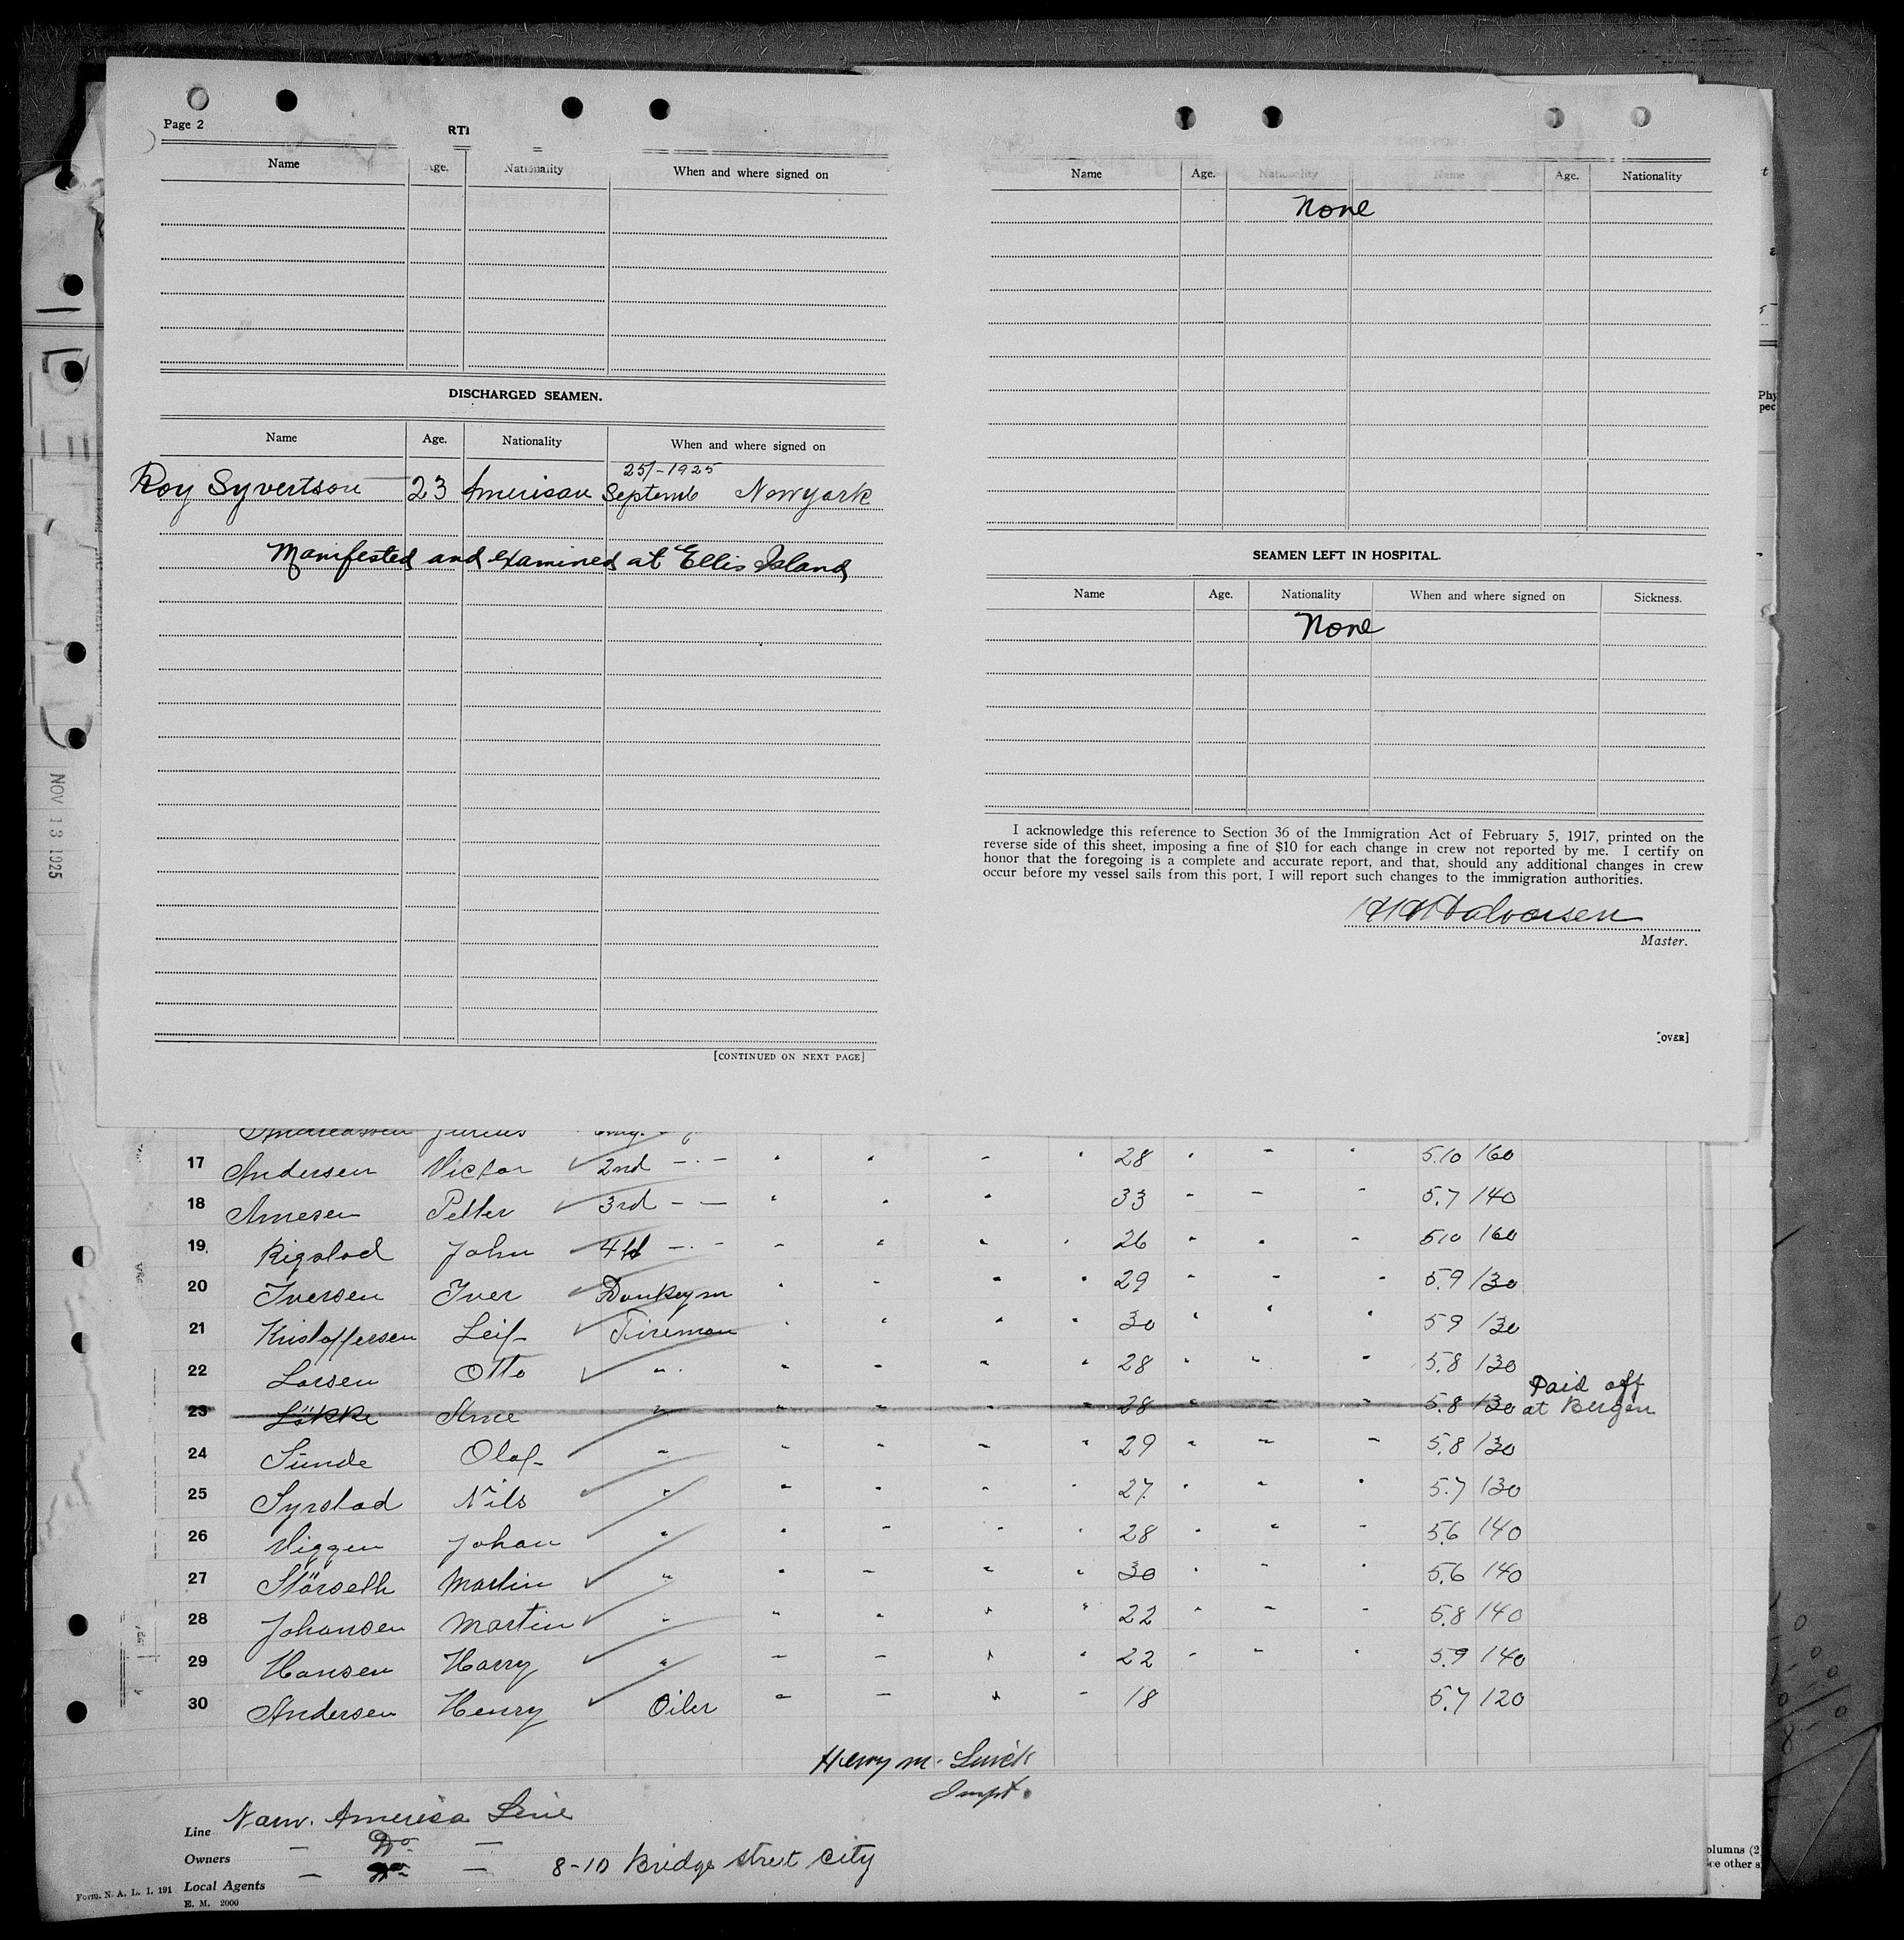 Page 2
RTI
Name Age. Nationality When and where signed on
DISCHARGED SEAMEN.
Name Age. Nationality When and where signed on
25/-1925
Roy Syvertson 23 American Septemb Newyork
Manifested and examined at Ellis Island
[CONTINUED ON NEXT PAGE]
Name Age. Nationality Name Age. Nationality
None
SEAMEN LEFT IN HOSPITAL.
Name Age. Nationality When and where signed on Sickness.
None
I acknowledge this reference to Section 36 of the Immigration Act of February 5, 1917, printed on the
reverse side of this sheet, imposing a fine of $10 for each change in crew not reported by me. I certify on
honor that the foregoing is a complete and accurate report, and that, should any additional changes in crew
occur before my vessel sails from this port, I will report such changes to the immigration authorities.
Halvorsen
Master.
[OVER]
NOV 13 1925
17 Andersen Victor 2nd - - - 28 5.10 160
18 Arnesen Petter 3rd - - 33 5.7 140
19 Rigstad John 4th - - - 26 5.10 160
20 Iversen Iver Donkeym 29 5.9 130
21 Kristoffersen Leif Fireman 30 5.9 130
22 Larsen Otto " 28 5.8 130
Paid off
23 Lökke Arne " 28 5.8 130 at Bergen
24 Sunde Olaf " 29 5.8 130
25 Syrstad Nils " 27 5.7 130
26 Viggen Johan " 28 5.6 140
27 Störseth Martin " 30 5.6 140
28 Johansen Martin " 22 5.8 140
29 Hansen Harry " 22 5.9 140
30 Andersen Henry Oiler 18 5.7 120
Henry M.
Inspt.
Line Norw. America Line
Owners - Do -
Local Agents - Do - 8-10 Bridge street city
Form. N. A. L. I. 191
E. M. 2000